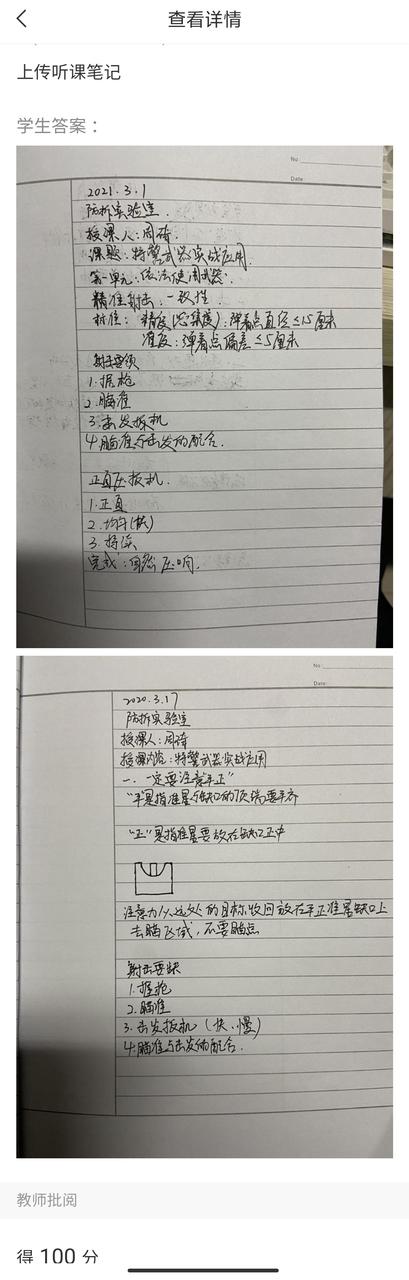 查看详情
上传听课笔记
学生答案：
No
Date
2021.3.1
防拆实验室.
授课人:周琦.
课题:特警武器实战应用
第一单元:依法使用武器.
精准射击:一致性.
标准: 精度(密集度):弹着点直径≤15厘米
准度:弹着点偏差≤5厘米
射击要领
1.握枪
2.瞄准
3.击发扳机
4.瞄准与击发的配合.
正直压扳机.
1.正直
2.均匀(快)
3.持续
完成:自然压响.
No:
Date:
2020.3.17
防拆实验室
授课人:周琦
授课内容:特警武器实战应用
一.一定要注意平正”
“平”是指准星与缺口的顶端要平齐
“正”是指准星要放在缺口正中
注意力从远处的目标收回放在平正准星缺口上
去瞄区域,不要瞄点
射击要诀
1.握枪
2.瞄准
3.击发扳机(快.慢)
4.瞄准与击发的配合.
教师批阅
得 100 分